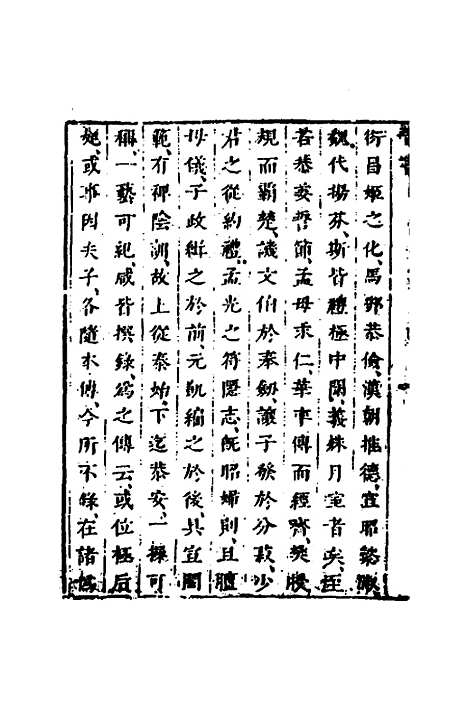 衍昌姬之化、馬鄧恭儉、漢朝推德、宣昭懿淑、
魏代揚芬、斯皆禮極中闈、義殊月室者矣、至
若恭姜誓節、孟母求仁、華率傅而經齊、樊授
規而霸楚、譏文伯於奉劒、讓子發於分菽、少
君之從約禮、孟光之符隱志、旣昭婦則、且擅
母儀、子政緝之於前、元凱編之於後、具宣閨
範、有裨陰訓、故上從泰始、下迄恭安、一操可
稱、一藝可紀、咸皆撰錄、爲之傳云、或位極后
妃、或事因夫子、各隨本傳、今所不錄、在諸僞